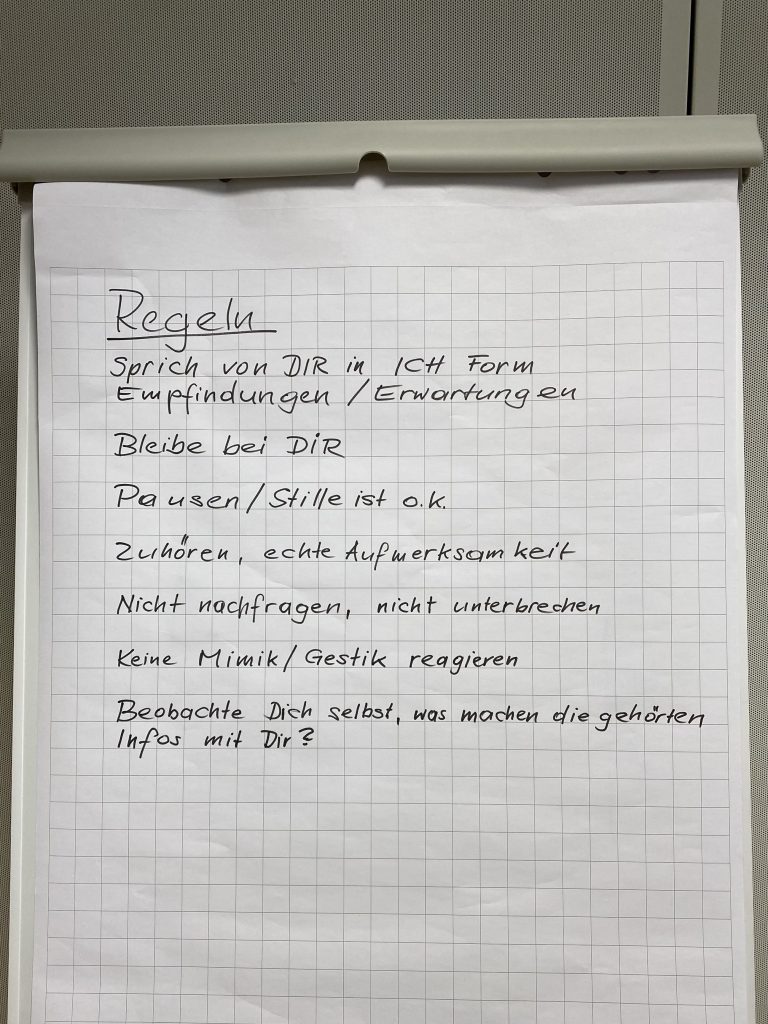 Regeln
Sprich von DIR in ICH Form
Empfindungen / Erwartungen
Bleibe bei DIR
Pausen / Stille ist o.k.
Zuhören, echte Aufmerksamkeit
Nicht nachfragen, nicht unterbrechen
Keine Mimik / Gestik reagieren
Beobachte Dich selbst, was machen die gehörten
Infos mit Dir?